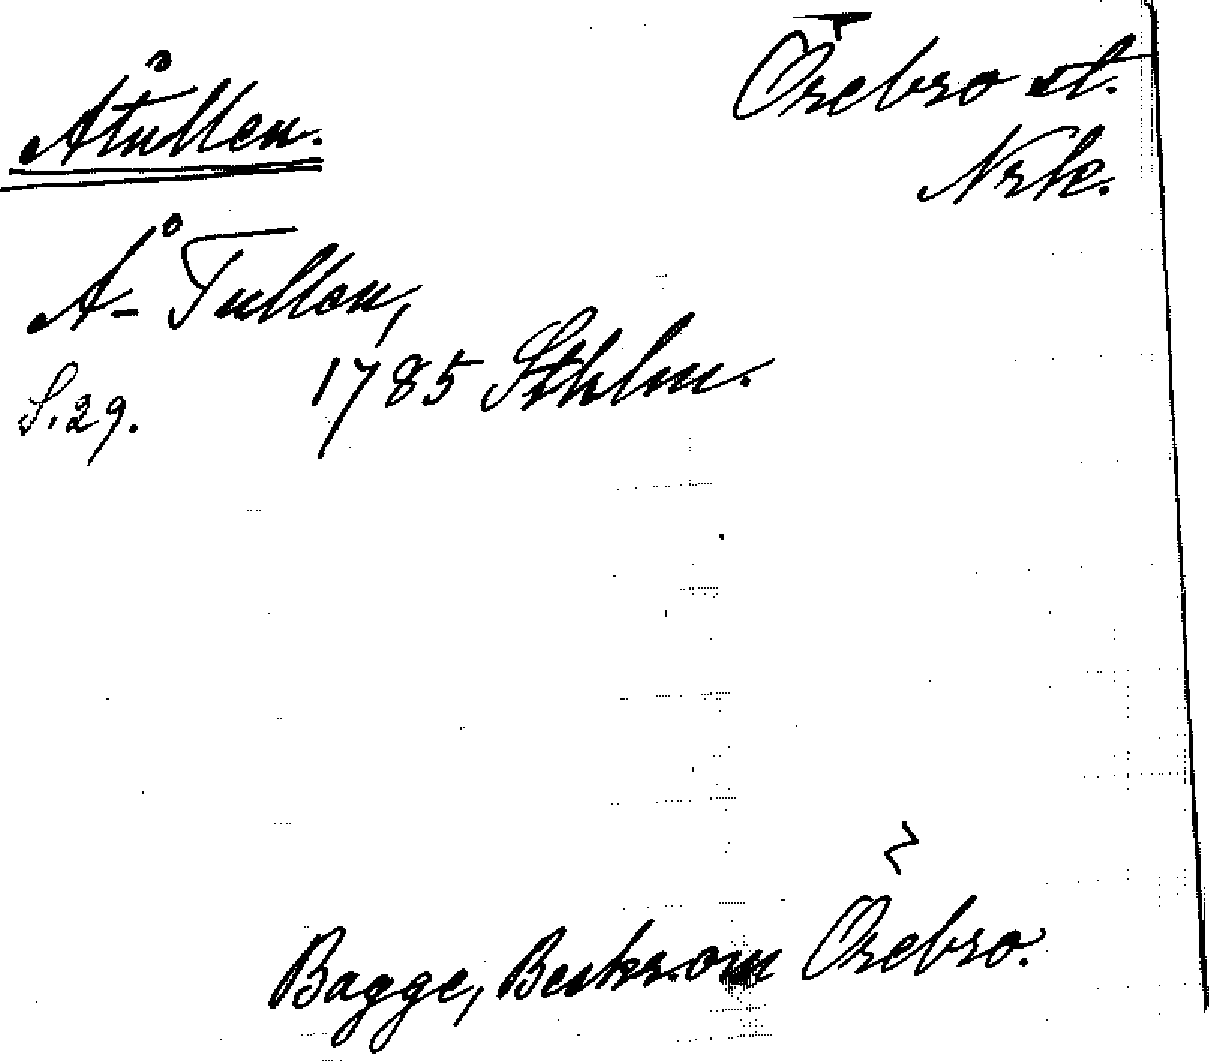 Åtullen.
Örebro st.
Nrk.
Å-Tullen,
1785 Sthlm.
S. 29.
Bagge, Beskr. om Örebro.